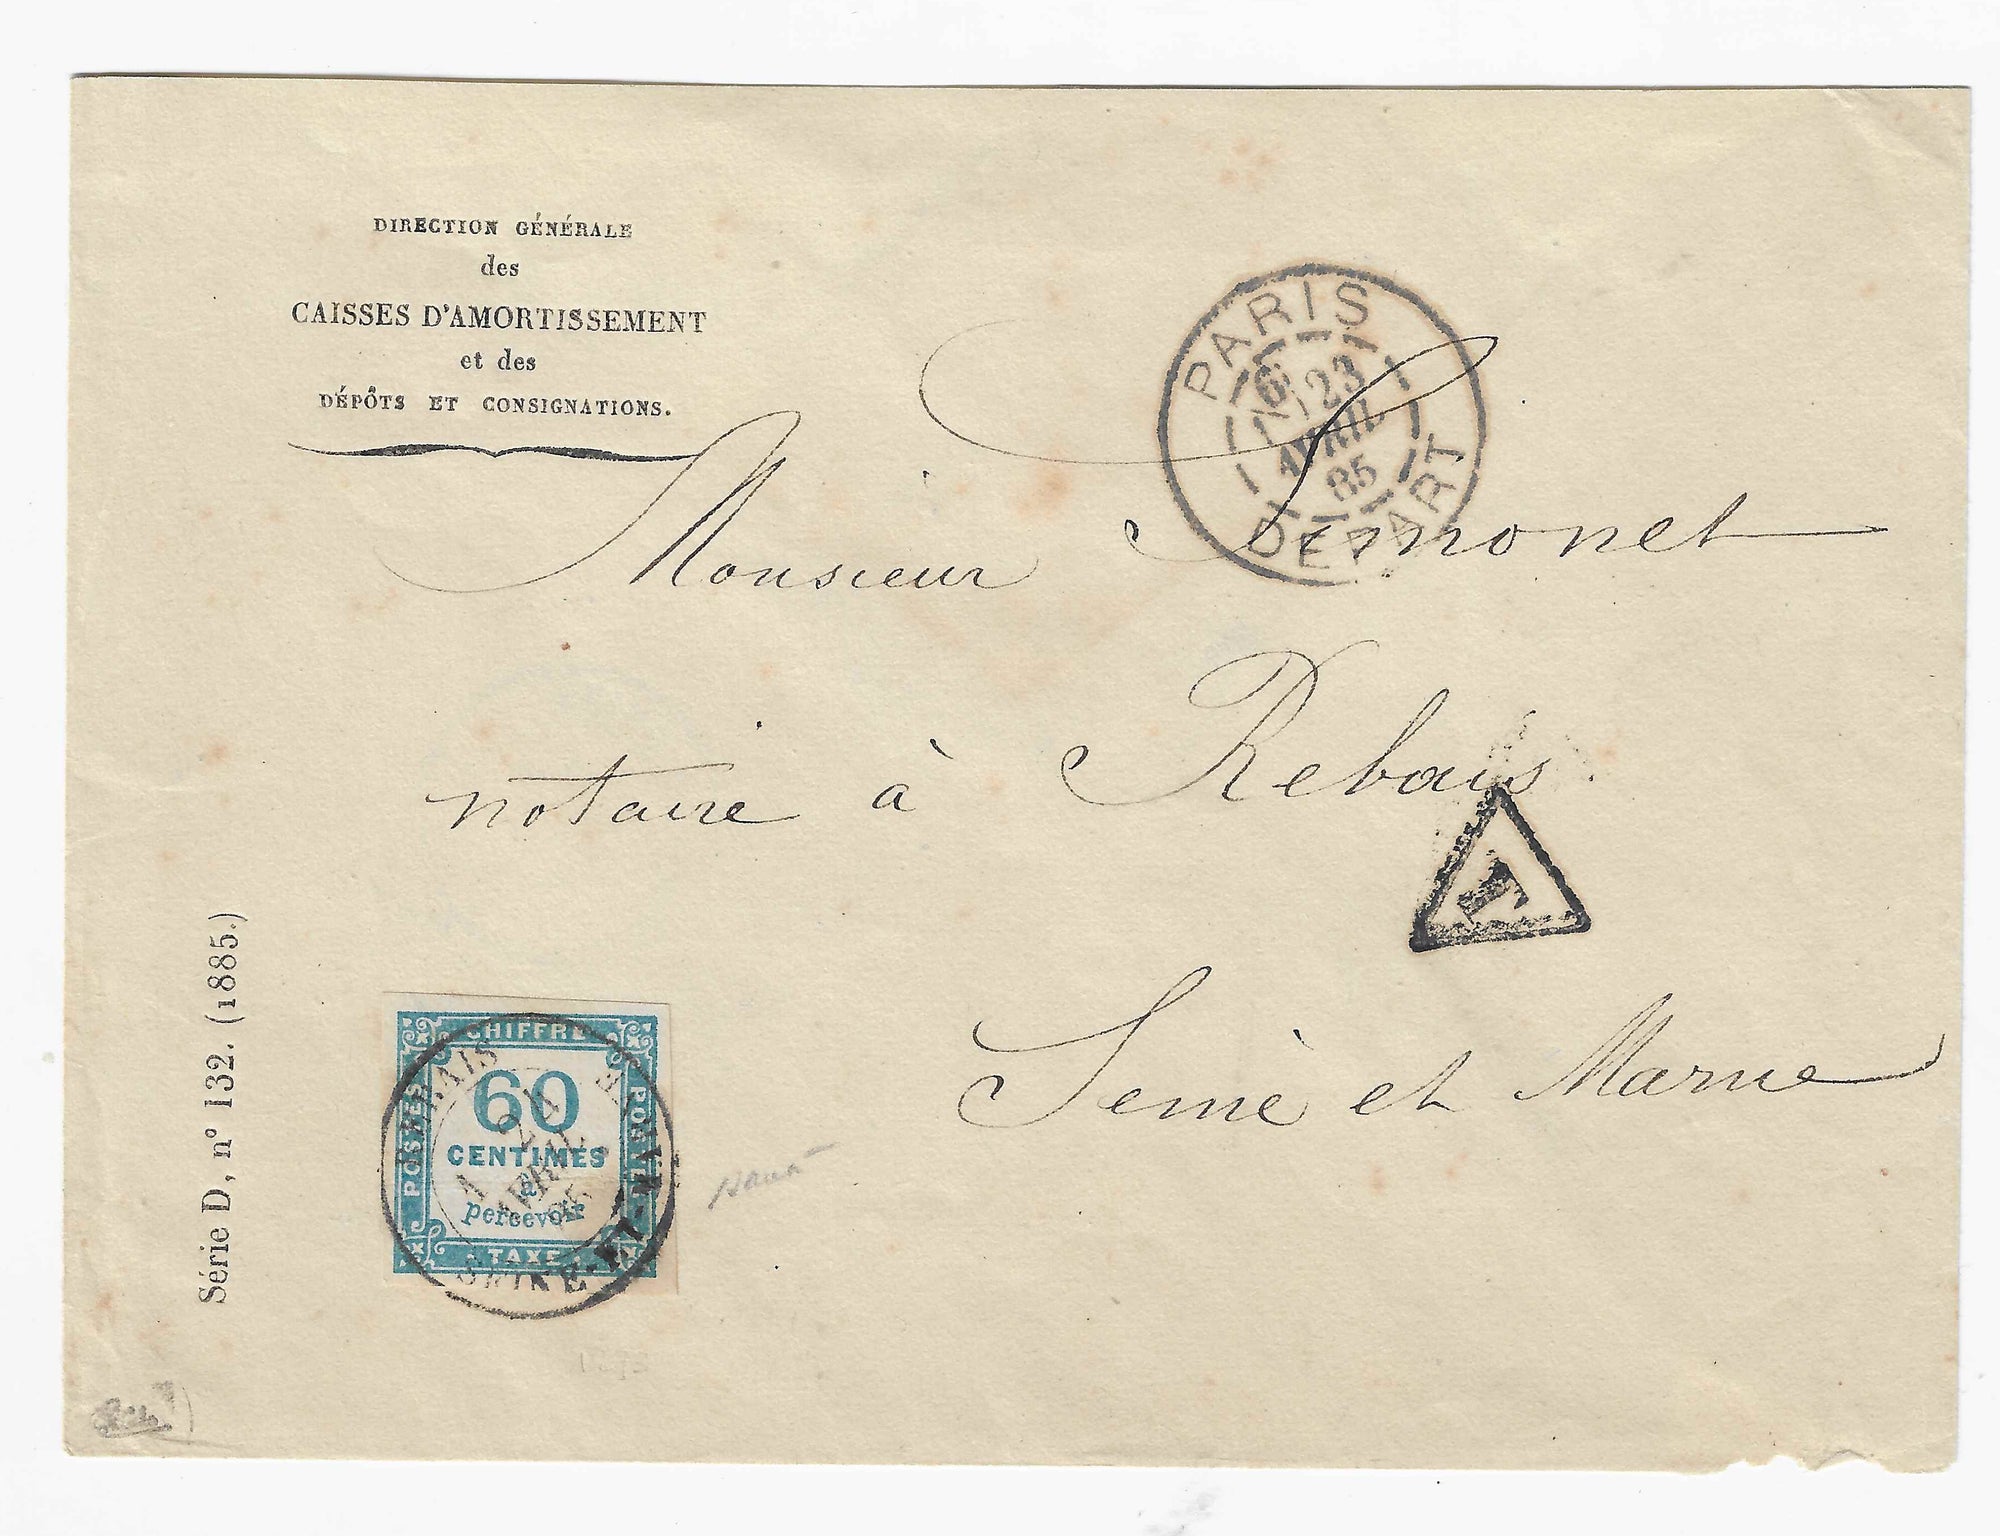 DIRECTION GÉNÉRALE
des
CAISSES D'AMORTISSEMENT
et des
DÉPÔTS ET CONSIGNATIONS.
PARIS
6E 23
AVRIL
85
DEPART
Monsieur Simonet
notaire à Rebais
T
Seine et Marne
Série D, nº 132. (1885.)
CHIFFRE
POSTES
60
CENTIMES
à
percevoir
POSTALE
TAXE
REBAIS
24
AVRIL
85
SEINE-ET-MARNE